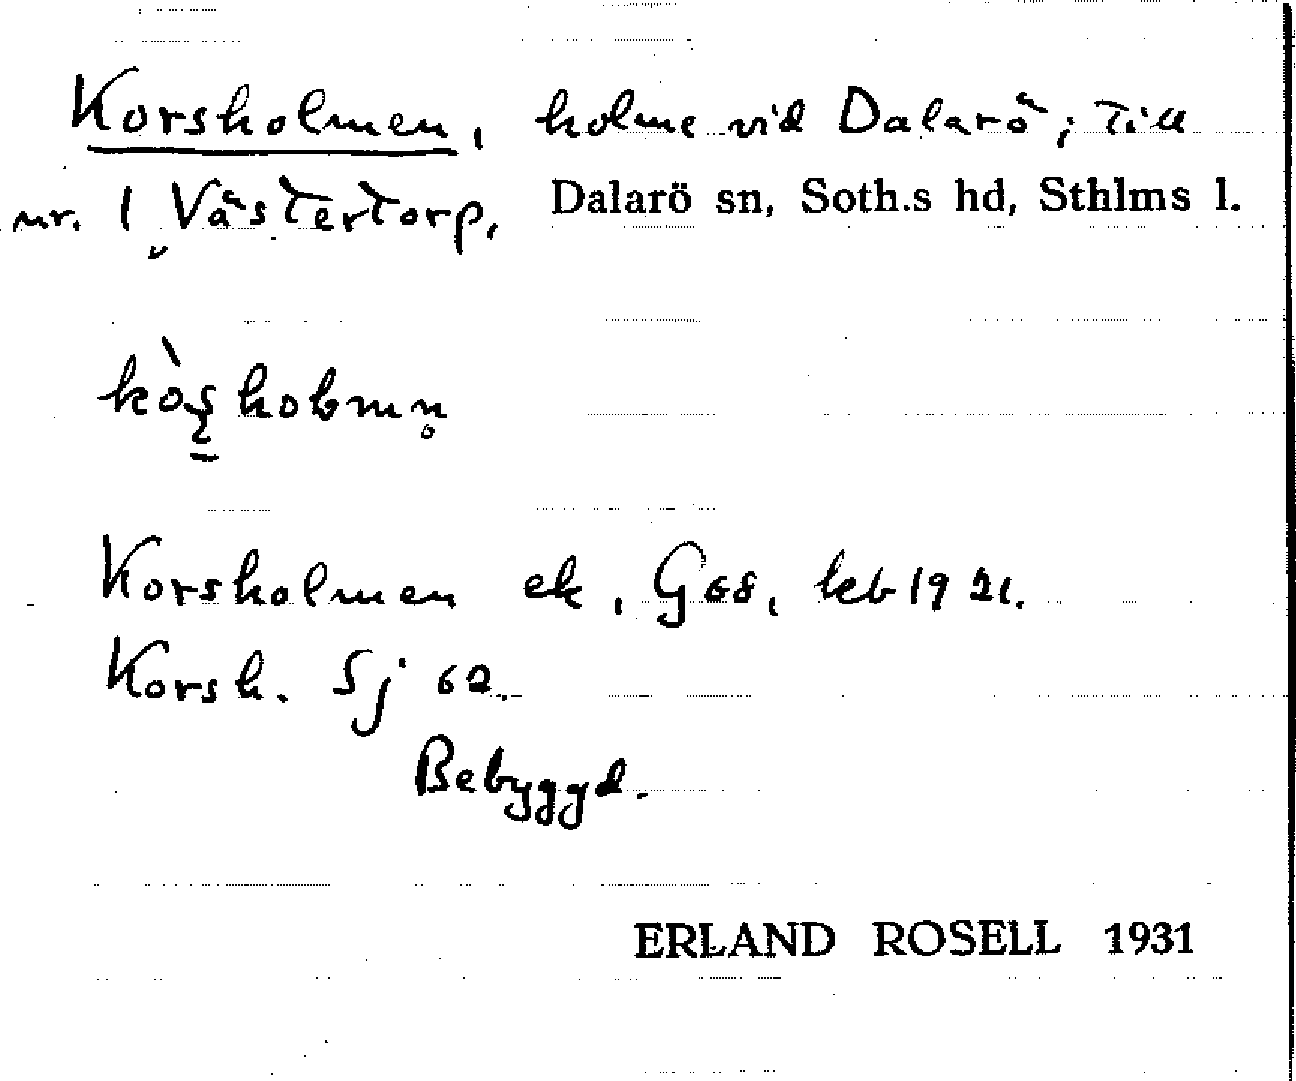 Korsholmen, holme vid Dalarö; till
nr. 1 Västertorp, Dalarö sn, Soth.s hd, Sthlms l.
Korsholmen ek, G68, keb 1921.
Korsh. Sj 62.
Bebyggd.
ERLAND ROSELL 1931